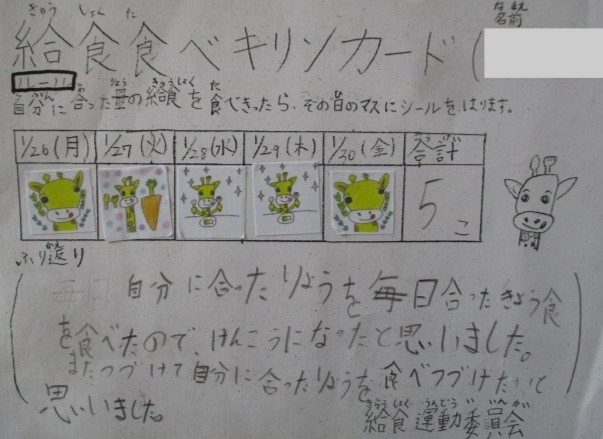 給食食べキリンカード(
名前
ルール
自分に合った量の給食を食べきったら、その日のマスにシールをはります。
1/26(月) 1/27(火) 1/28(水) 1/29(木) 1/30(金) 合計
5こ
ふり返り
自分に合ったりょうを毎日合ったきょう食
を食べたので、けんこうになったと思いました。
またつづけて自分に合ったりょうを食べつづけたいと
思いました。
給食運動委員会